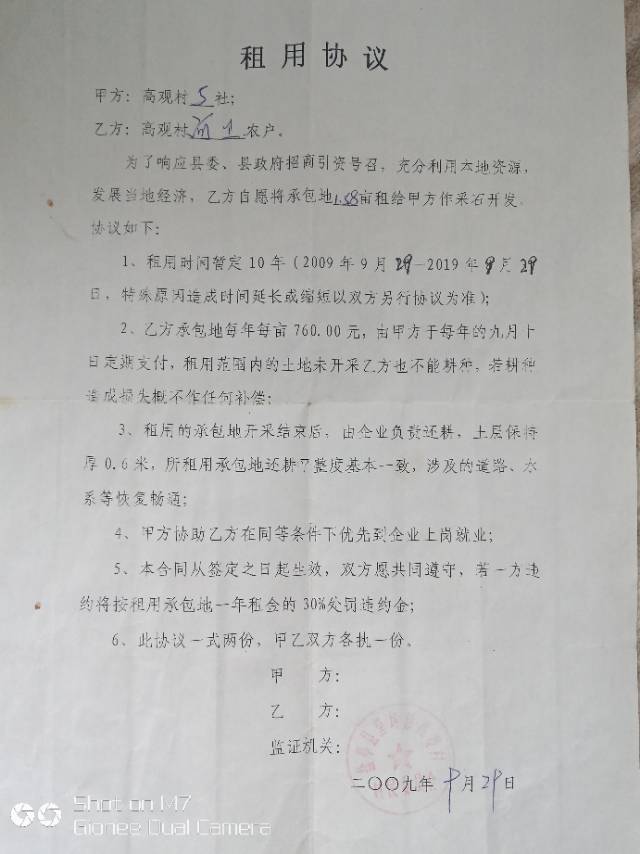 租用协议
甲方：高观村5社；
乙方：高观村 农户。
为了响应县委、县政府招商引资号召，充分利用本地资源，
发展当地经济，乙方自愿将承包地1.58亩租给甲方作采石开发。
协议如下：
1、租用时间暂定10年（2009年9月29—2019年9月29
日，特殊原因造成时间延长或缩短以双方另行协议为准）；
2、乙方承包地每年每亩760.00元，由甲方于每年的九月十
日定期支付，租用范围内的土地未开采乙方也不能耕种，若耕种
造成损失概不作任何补偿；
3、租用的承包地开采结束后，由企业负责还耕，土层保持
厚0.6米，所租用承包地还耕平整度基本一致，涉及的道路、水
系等恢复畅通；
4、甲方协助乙方在同等条件下优先到企业上岗就业；
5、本合同从签定之日起生效，双方愿共同遵守，若一方违
约将按租用承包地一年租金的30%处罚违约金；
6、此协议一式两份，甲乙双方各执一份。
甲 方：
乙 方：
监证机关：
二〇〇九年9月29日
Shot on M7
Gionee Dual Camera